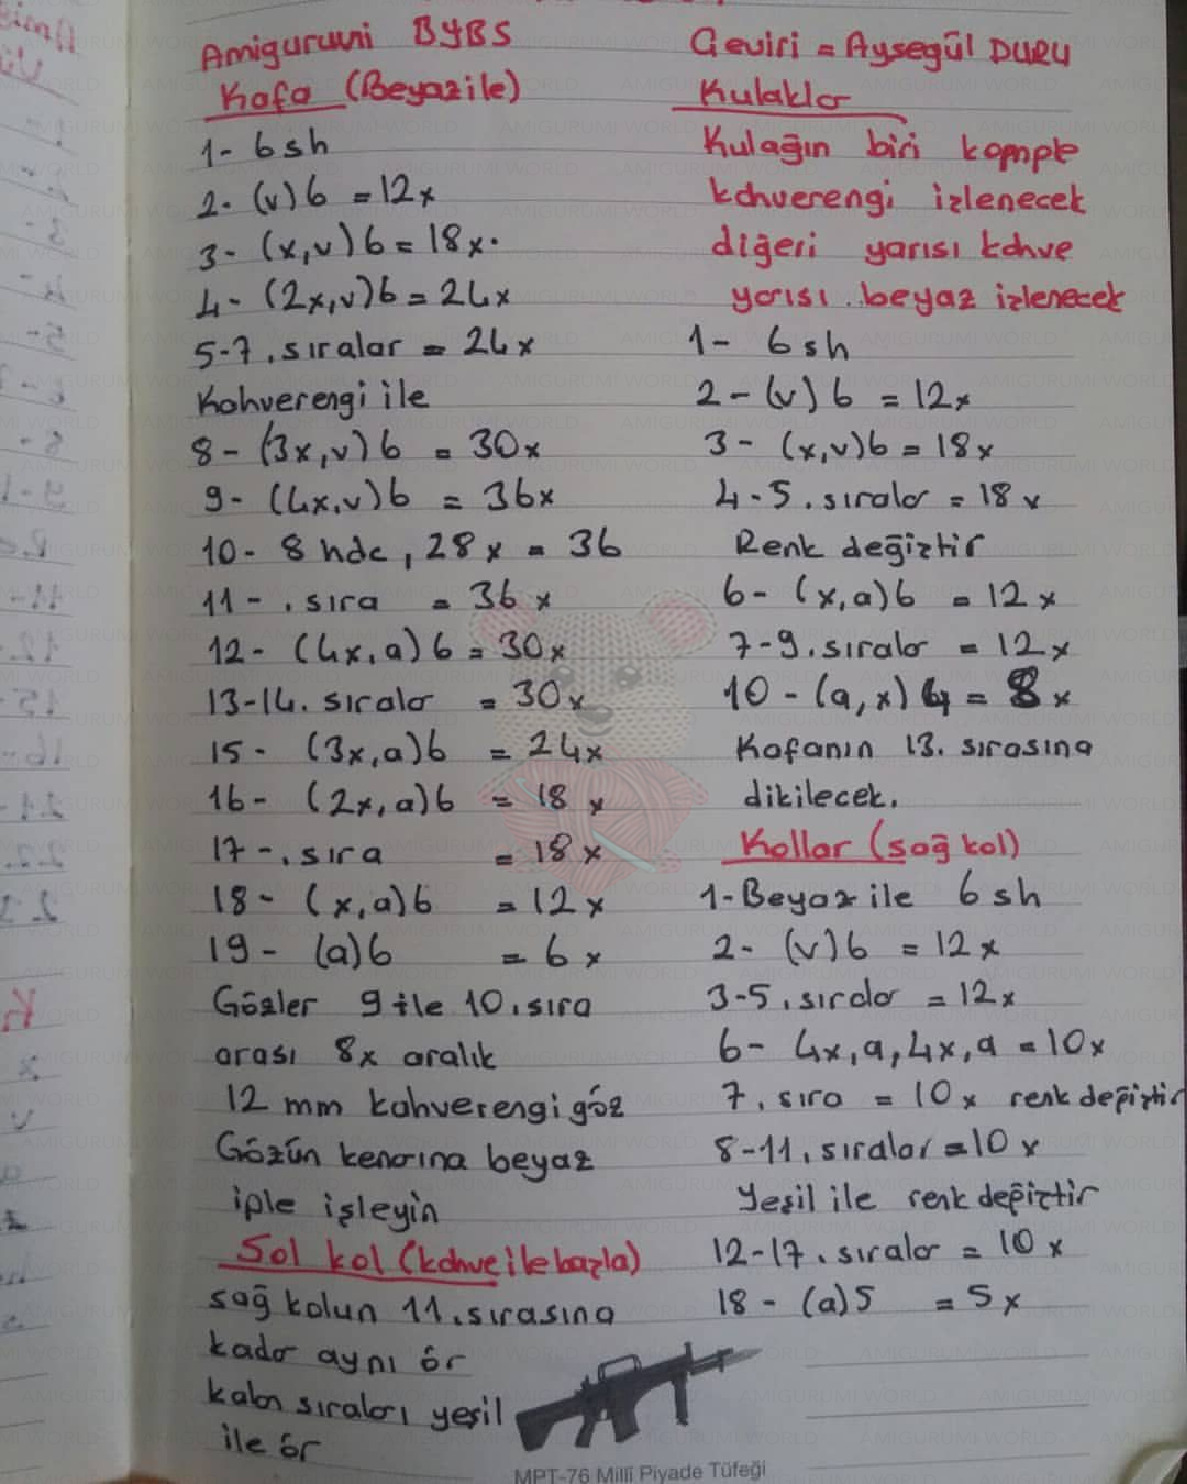 Amigurumi BYBS
Kafa (Beyaz ile)
1- 6sh
2- (v)6 = 12x
3- (x,v)6 = 18x.
4- (2x,v)6 = 24x
5-7. sıralar = 24x
Kahverengi ile
8- (3x,v)6 = 30x
9- (4x,v)6 = 36x
10- 8 hdc, 28x = 36
11-. sıra = 36x
12- (4x,a)6 = 30x
13-14. sıralar = 30x
15- (3x,a)6 = 24x
16- (2x,a)6 = 18x
17-. sıra = 18x
18- (x,a)6 = 12x
19- (a)6 = 6x
Gözler 9 ile 10. sıra
arası 8x aralık
12 mm kahverengi göz
Gözün kenarına beyaz
iple işleyin
Sol kol (kahve ile başla)
sağ kolun 11. sırasına
kadar aynı ör
kalan sıraları yeşil
ile ör
Çeviri = Ayşegül DURU
Kulaklar
Kulağın biri komple
kahverengi izlenecek
diğeri yarısı kahve
yarısı. beyaz izlenecek
1- 6sh
2- (v)6 = 12x
3- (x,v)6 = 18x
4-5. sıralar = 18x
Renk değiştir
6- (x,a)6 = 12x
7-9. sıralar = 12x
10- (a,x)4 = 8x
Kafanın 13. sırasına
dikilecek.
Kollar (sağ kol)
1- Beyaz ile 6 sh
2- (v)6 = 12x
3-5. sıralar = 12x
6- 4x,a,4x,a = 10x
7. sıra = 10x renk değiştir
8-11. sıralar = 10x
Yeşil ile renk değiştir
12-17. sıralar = 10x
18- (a)5 = 5x
MPT-76 Millî Piyade Tüfeği
AMIGURUMI WORLD